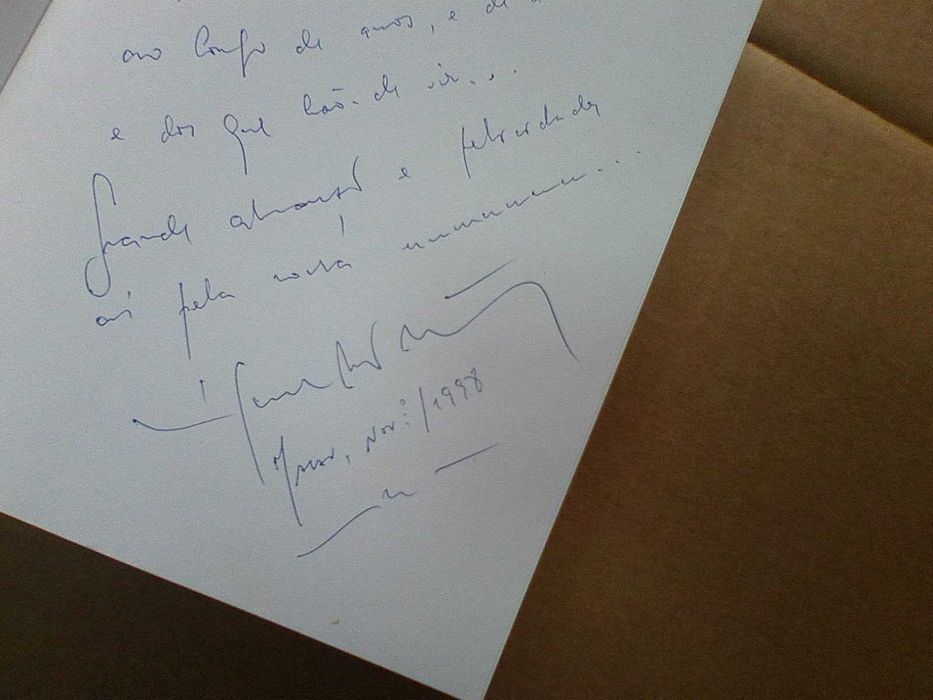 ao longo de anos, e de
e dos que hão-de vir...
Grande abraço e felicidades
aí pela nossa
Nov:/1998